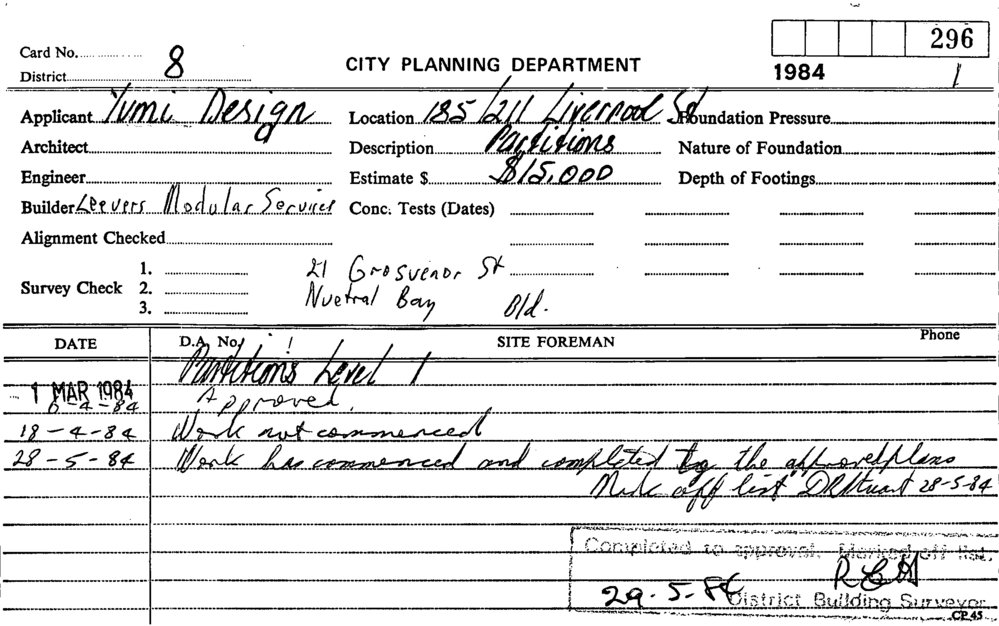 296
Card No. 8
CITY PLANNING DEPARTMENT
1984 1
District
Applicant Yumi Design Location 185/211 Liverpool St Foundation Pressure
Architect Description Partitions Nature of Foundation
Engineer Estimate $ $15,000 Depth of Footings
Builder Leevers Modular Services Conc. Tests (Dates)
Alignment Checked
1. 21 Grosvenor St
Survey Check 2. Nuetral Bay Bld.
3.
DATE D.A. No. SITE FOREMAN Phone
Partitions Level 1
1 MAR 1984
6-4-84 Approved.
18-4-84 Work not commenced
28-5-84 Work has commenced and completed to the approved plans
Mark off list DR Stuart 28-5-84
Completed to approval. Marked off list.
29.5.84 District Building Surveyor
CP 45